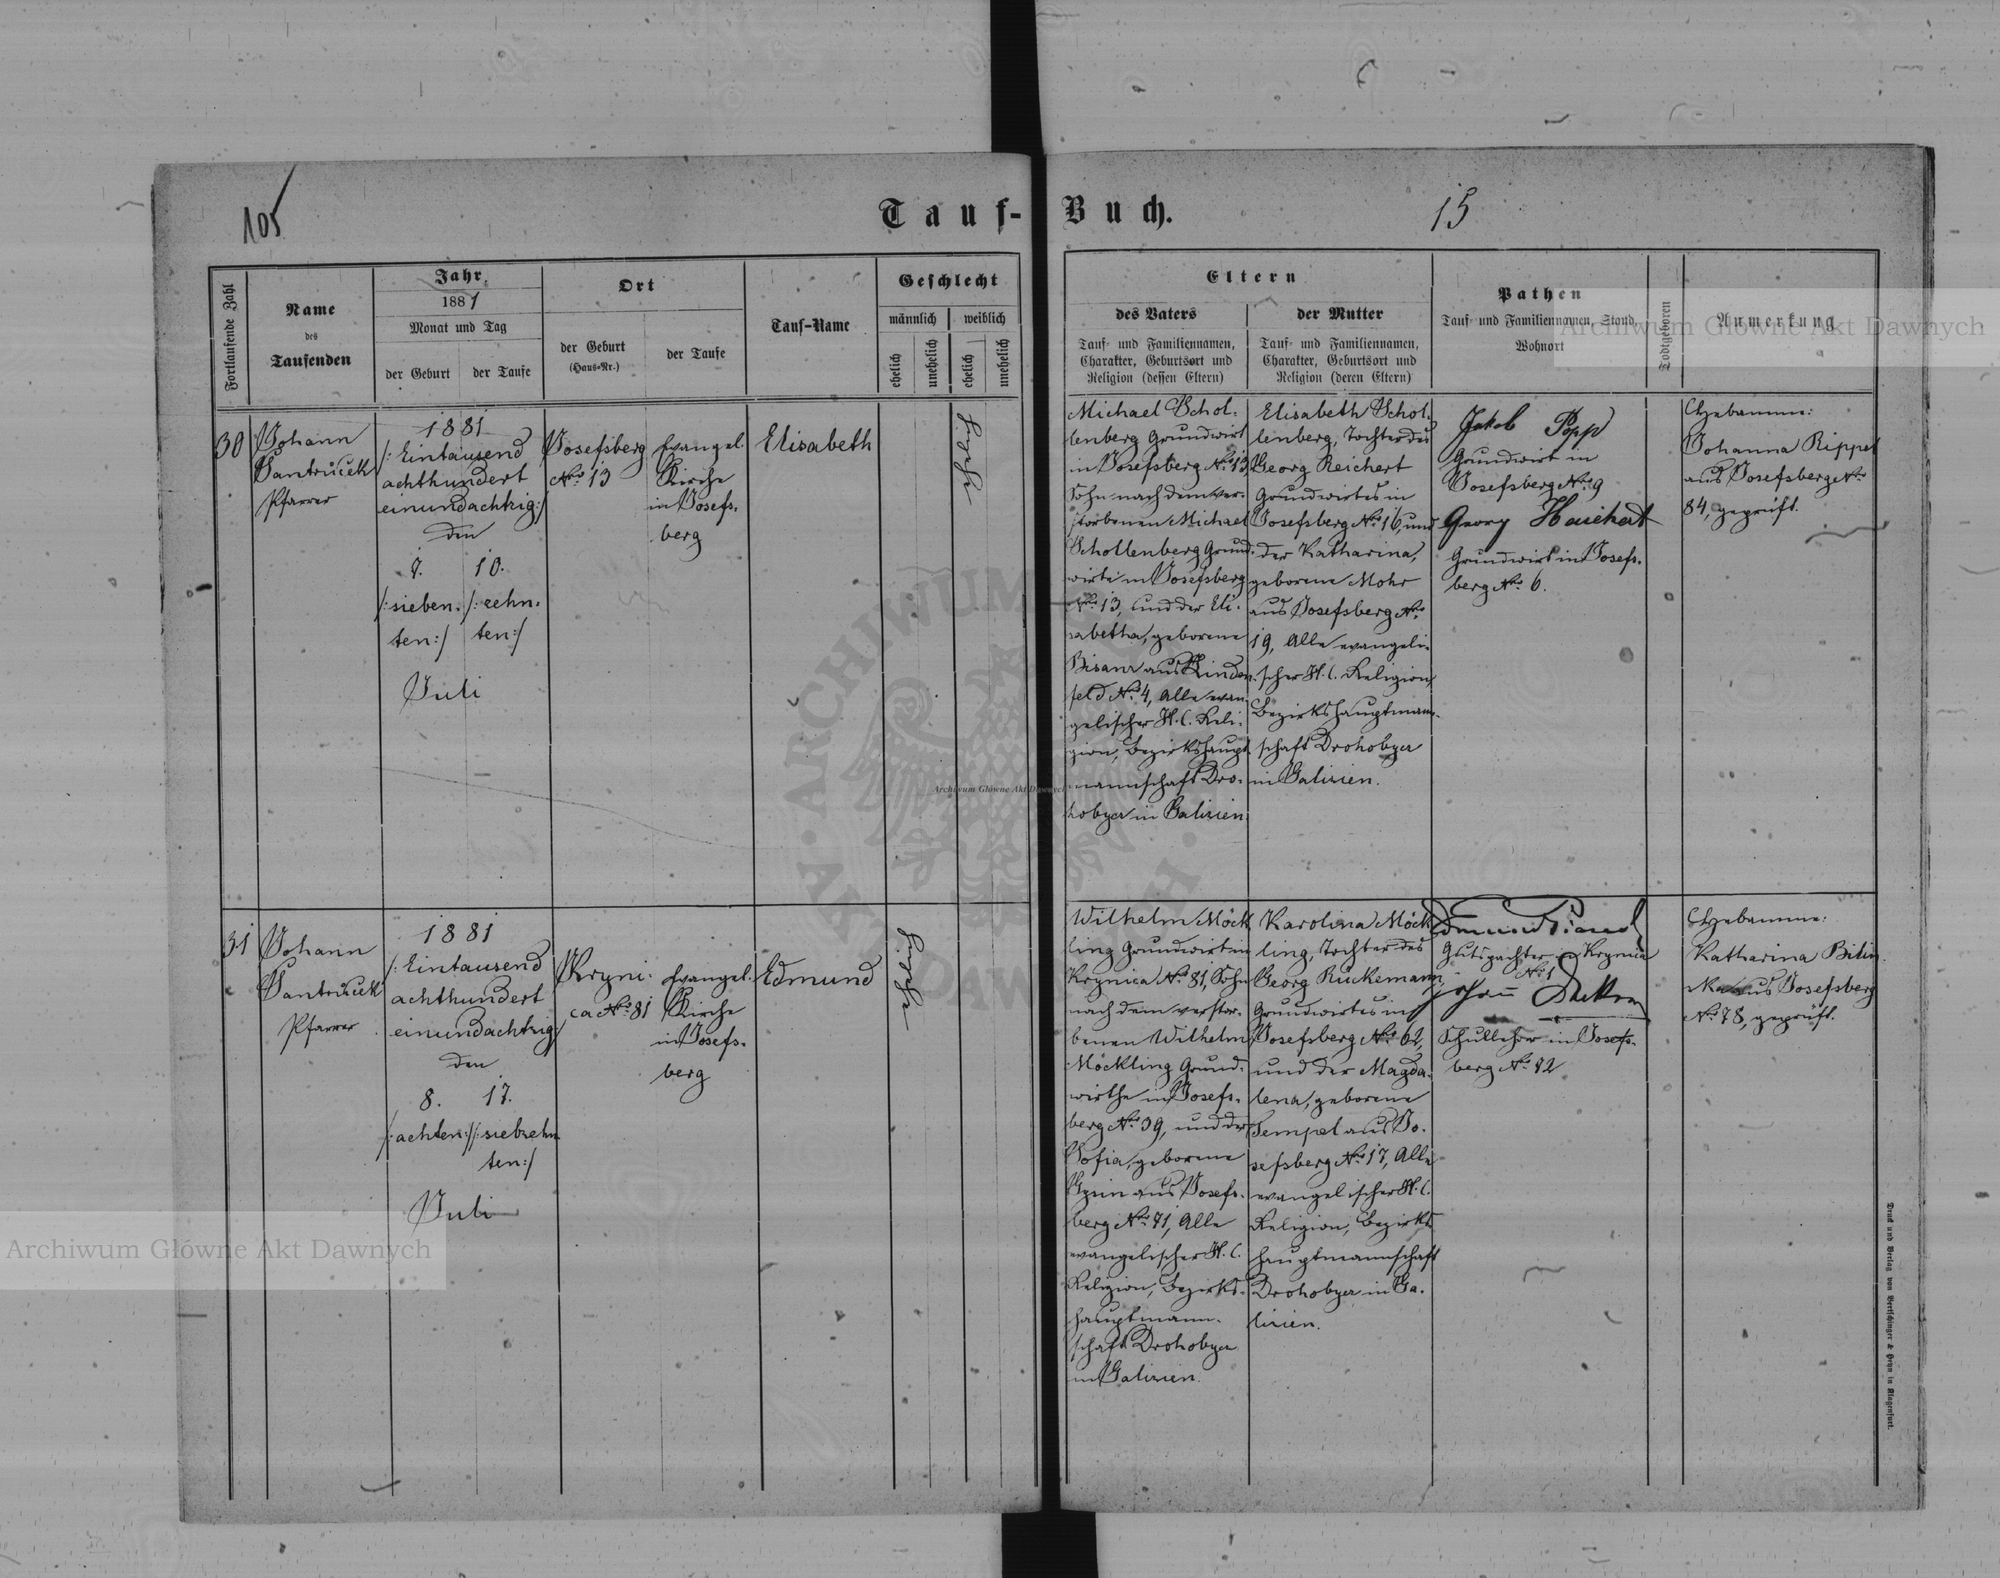 105
Tauf-Buch.
15
Fortlaufende Zahl
Name
des
Taufenden
Jahr
1881
Monat und Tag
der Geburt
der Taufe
Ort
der Geburt
(Haus-Nr.)
der Taufe
Tauf-Name
Geschlecht
männlich
weiblich
ehelich
unehelich
ehelich
unehelich
Eltern
des Vaters
Tauf- und Familiennamen,
Charakter, Geburtsort und
Religion (dessen Eltern)
der Mutter
Tauf- und Familiennamen,
Charakter, Geburtsort und
Religion (deren Eltern)
Pathen
Tauf- und Familiennamen, Stand,
Wohnort
Todtgeboren
Anmerkung
Archiwum Główne Akt Dawnych
30
Johann
Jantrücek
Pfarrer
1881
/:Eintausend
achthundert
einundachtzig:/
den
7.
/:sieben-
ten:/
10.
/:zehn-
ten:/
Juli
Josefsberg
No. 13
Evangel.
Kirche
in Josefs-
berg
Elisabeth
Michael Schol-
lenberg Grundwirt
in Josefsberg No. 13,
Sohn nach dem ver-
storbenen Michael
Schollenberg Grund-
wirte in Josefsberg
No. 13, und der Eli-
sabetha, geborene
Bisanz aus Linden-
feld No. 4, Alle evan-
gelischer H. C. Reli-
gion, Bezirkshaupt-
mannschaft Dro-
hobycz in Galizien.
Elisabeth Schol-
lenberg, Tochter des
Georg Reichert
Grundwirtes in
Josefsberg No. 16, und
der Katharina,
geborene Mohr
aus Josefsberg No.
19, Alle evangeli-
scher H. C. Religion,
Bezirkshauptmann-
schaft Drohobycz
in Galizien.
Jakob Popp
Grundwirt in
Josefsberg No. 9
Georg
Grundwirt in Josefs-
berg No. 6.
Hebamme:
Johanna Rippel
aus Josefsberg No.
84, geprüft.
31
Johann
Jantrücek
Pfarrer
1881
/:Eintausend
achthundert
einundachtzig:/
den
8.
/:achten:/
17.
/:siebzehn-
ten:/
Juli
Kryni-
ca No. 81
Evangel.
Kirche
in Josefs-
berg
Edmund
Wilhelm Möck-
ling Grundwirt in
Krynica No. 81, Sohn
nach dem verstor-
benen Wilhelm
Möckling Grund-
wirthe in Josefs-
berg No. 39, und der
Sofia, geborene
aus Josefs-
berg No. 71, Alle
evangelischer H. C.
Religion, Bezirks-
hauptmann-
schaft Drohobycz
in Galizien.
Karolina Möck-
ling, Tochter des
Georg Rückemann,
Grundwirtes in
Josefsberg No. 62,
und der Magda-
lena, geborene
Tempel aus Jo-
sefsberg No. 17, Alle
evangelischer H. C.
Religion, Bezirks-
hauptmannschaft
Drohobycz in Ga-
lizien.
Edmund
Gutspachter in Krynica
No. 1
Johann
Schullehrer in Josefs-
berg No. 82
Hebamme:
Katharina
aus Josefsberg
No. 78, geprüft.
Archiwum Główne Akt Dawnych
Archiwum Główne Akt Dawnych
Druck und Verlag von Bertschinger & Heyn in Klagenfurt.